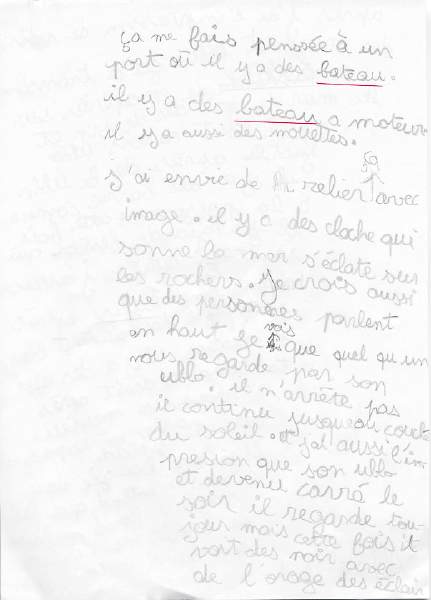 ça me fais penssée à un
port où il y a des bateau.
il y a des bateau a moteur
il y a aussi des mouettes.
ça
j'ai envie de relier avec
image. il y a des cloche qui
sonne la mer s'éclate sur
les rochers. je crois aussi
que des personnes parlent
vois
en haut je que quel qu un
nous regarde par son
ublo. il n'arrête pas
it continu jusqueau couché
du soleil. et j'ai aussi l'im
presion que son ublo
et devenu carré le
soir il regarde tou-
jour mais cette fois it
vort des noir avec
de l'orage des éclair